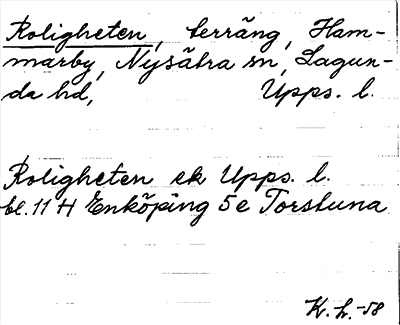 Roligheten, terräng, Ham-
marby, Nysätra sn, Lagun-
da hd, Upps. l.
Roligheten ek Upps. l.
bl. 11 H Enköping 5 e Torstuna
K. L. -58